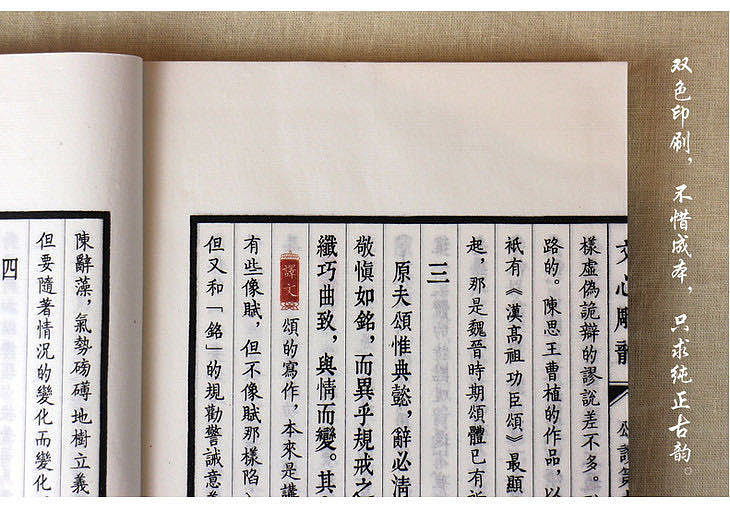 双色印刷，不惜成本，只求纯正古韵。
文心雕龍
頌讚第
樣虛偽詭辯的謬說差不多。
路的。陳思王曹植的作品，以
祇有《漢高祖功臣頌》最顯
起，那是魏晉時期頌體已有
三
原夫頌惟典懿，辭必清
敬慎如銘，而異乎規戒之
纖巧曲致，與情而變。其
譯文 頌的寫作，本來是講
有些像賦，但不像賦那樣陷
但又和「銘」的規勸警誡意
陳辭藻，氣勢磅礴地樹立義
但要隨著情況的變化而變化
四